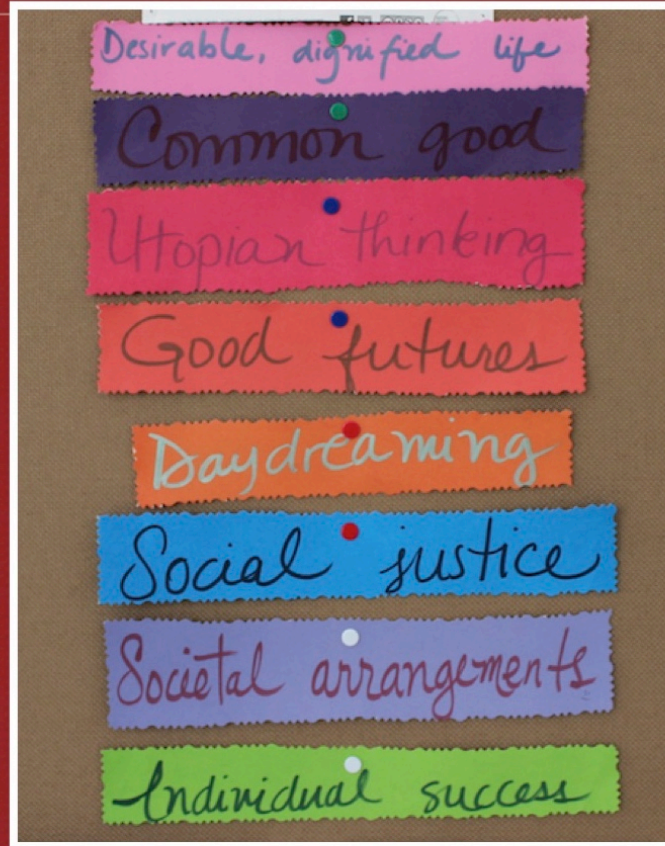 Desirable, dignified life
Common good
Utopian thinking
Good futures
Daydreaming
Social justice
Societal arrangements
Individual success